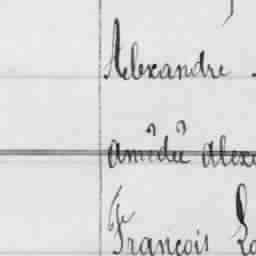 Alexandre
amédée alex
François